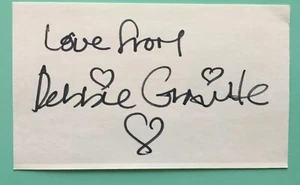 Love from
Debbie Gravitte